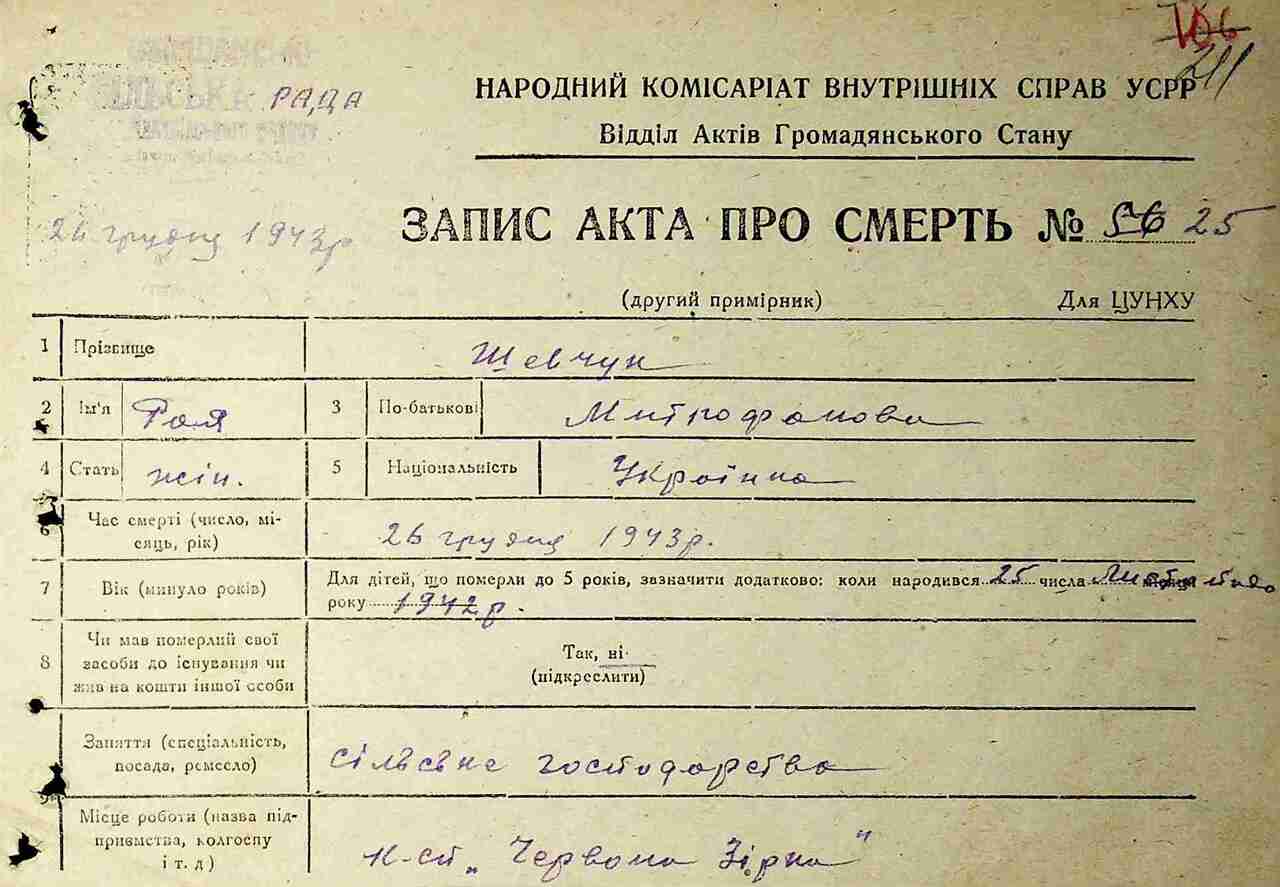 РАДА
НАРОДНИЙ КОМІСАРІАТ ВНУТРІШНІХ СПРАВ УСРР
Відділ Актів Громадянського Стану
26 грудня 1943р
ЗАПИС АКТА ПРО СМЕРТЬ № 25
(другий примірник) Для ЦУНХУ
1 Прізвище Шевчук
2 Ім'я Рая 3 По-батькові Митрофанова
4 Стать жін. 5 Національність Українка
6 Час смерті (число, мі-
сяць, рік) 26 грудня 1943р.
7 Вік (минуло років) Для дітей, що померли до 5 років, зазначити додатково: коли народився 25 числа
року 1942 р.
8 Чи мав померлий свої
засоби до існування чи
жив на кошти іншої особи
Так, ні
(підкреслити)
9 Заняття (спеціальність,
посада, ремесло) сільське господарство
Місце роботи (назва під-
приємства, колгоспу
і т. д) к-сп „Червона Зірка"